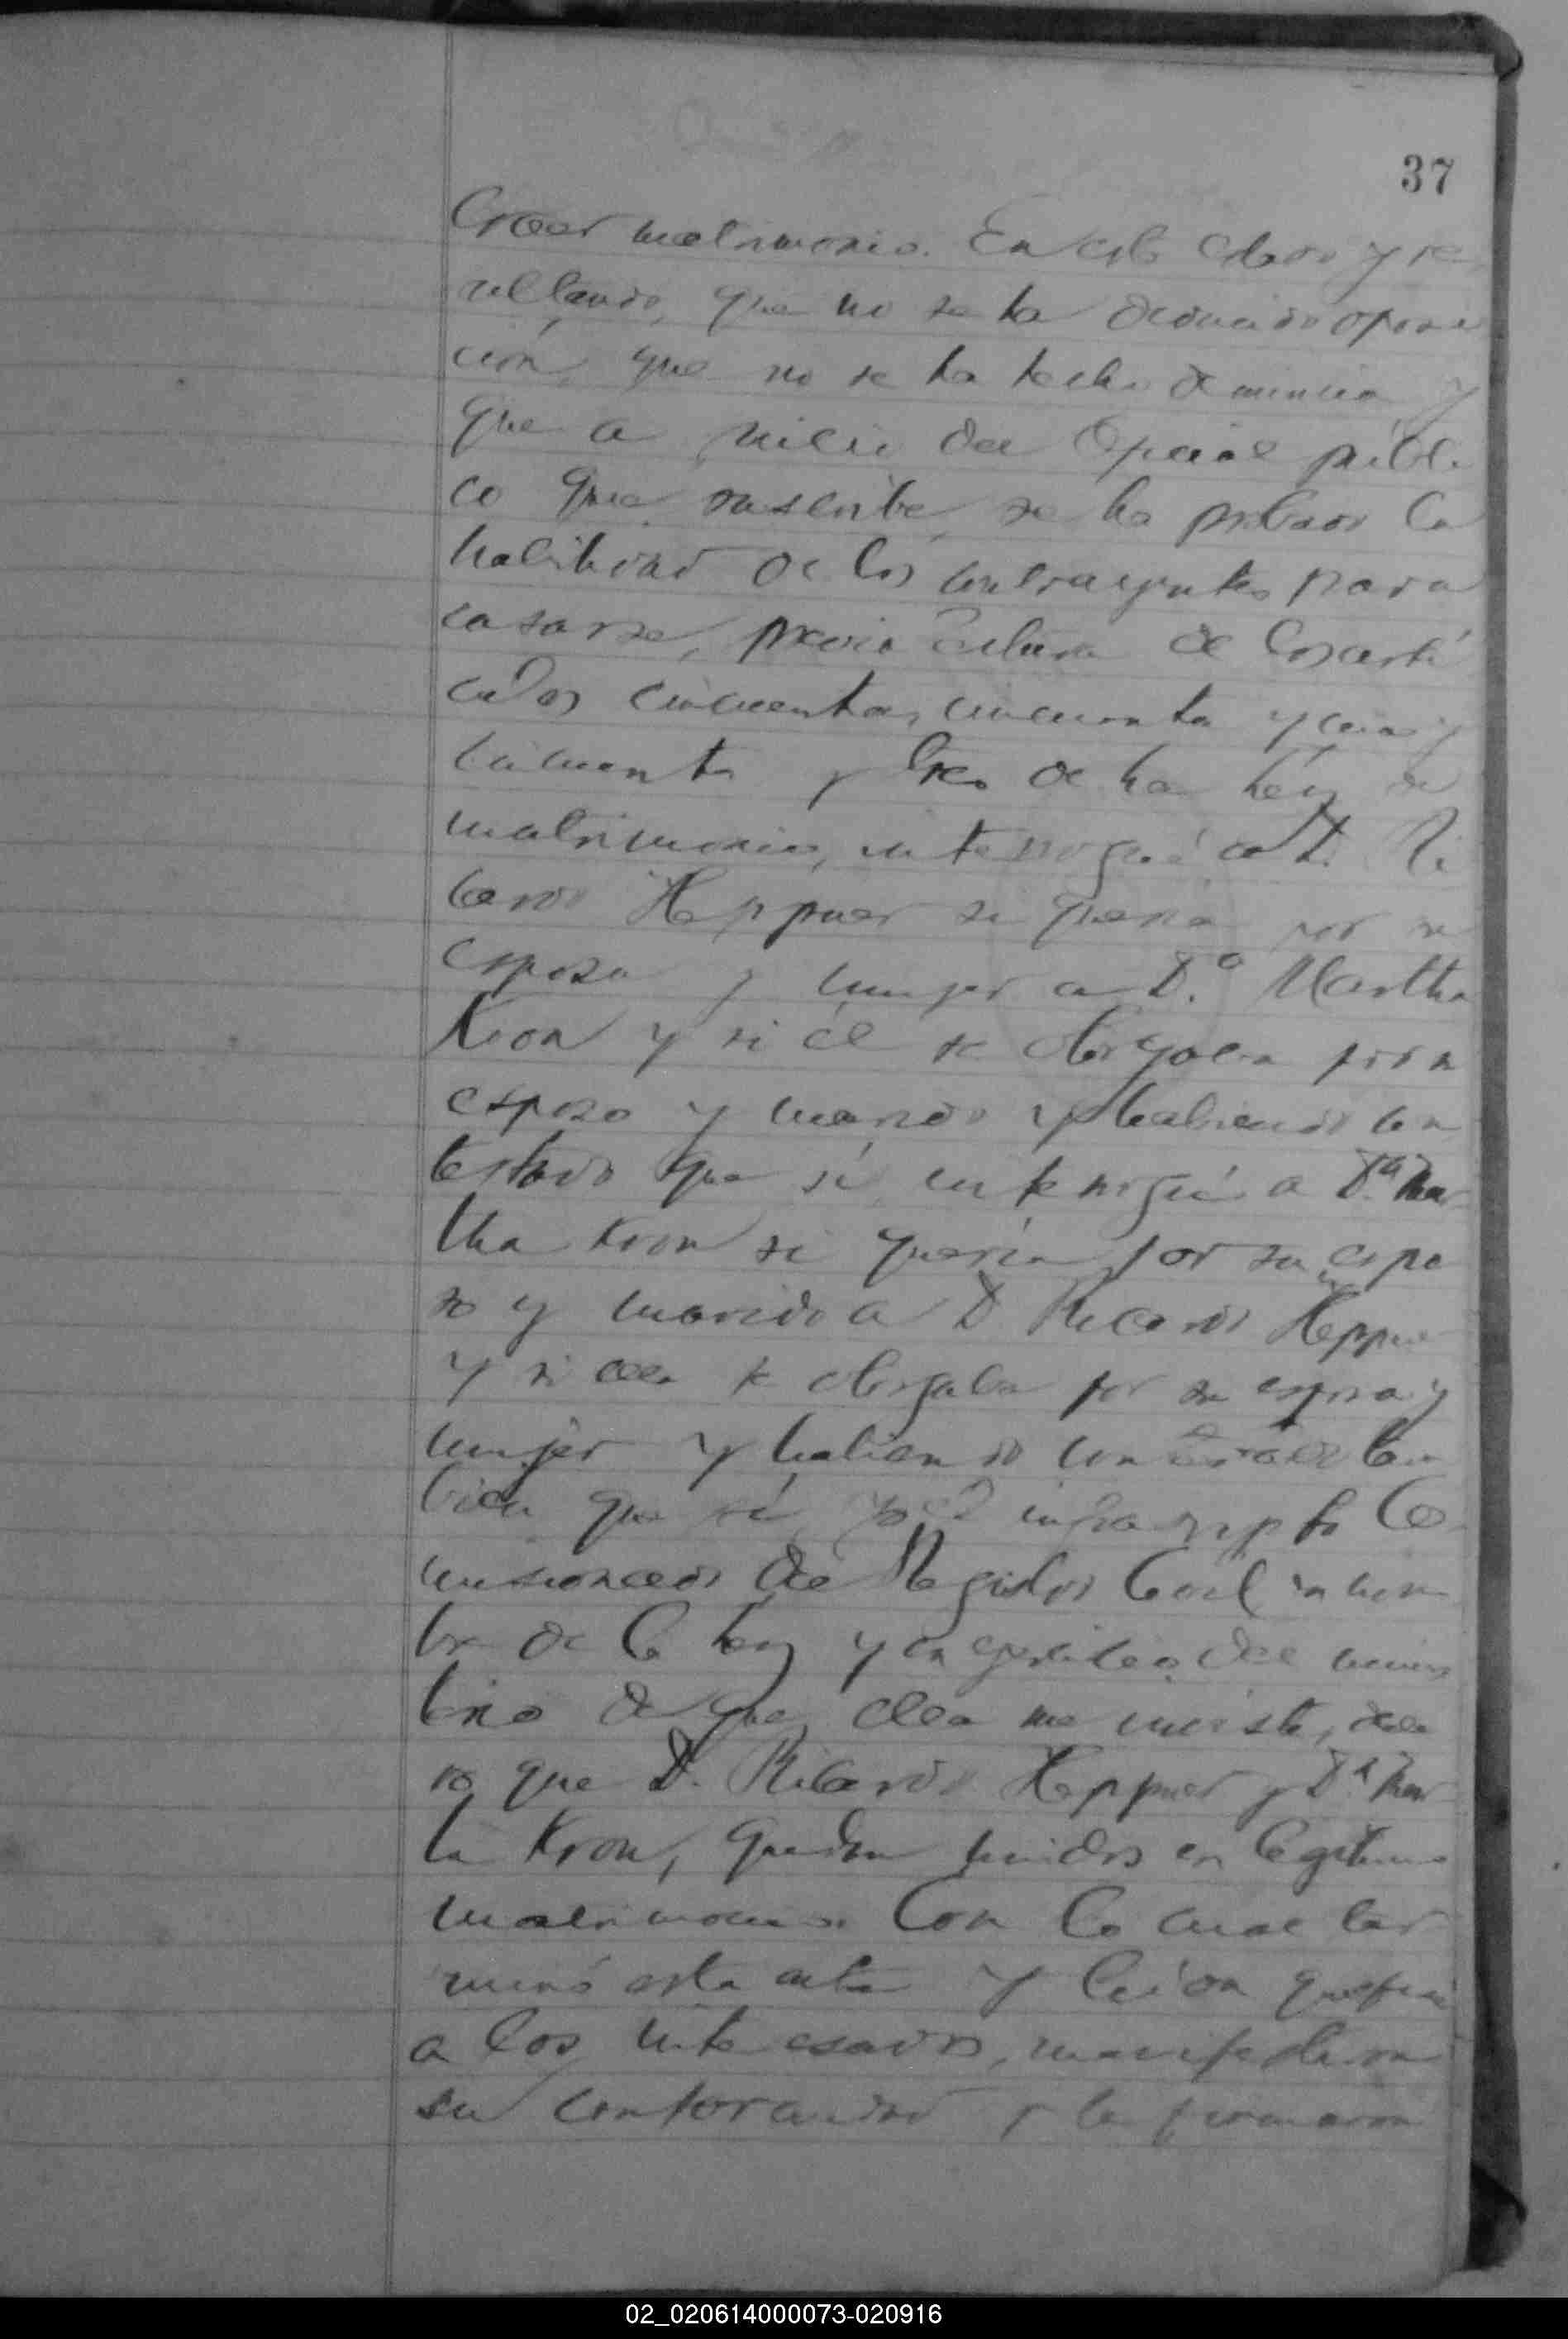 37
traer matrimonio. En este estado y re
sultando, que no se ha deducido oposi
ción, que no se ha hecho denuncia y
que a juicio del Oficial públi
co que suscribe, se ha probado la
habilidad de los contrayentes para
casarse, previa lectura de los artí
culos cincuenta, cincuenta y uno y
cincuenta y tres de la ley de
matrimonio, interrogué a D. Ri
cardo Heppner si quería por su
esposa y mujer a D.a Martha
Kron y si él se otorgaba por su
esposo y marido y habiendo con
testado que sí interrogué a D.a Mar
tha Kron si quería por su espo
so y marido a D. Ricardo Heppner
y si ella se otorgaba por su esposa y
mujer y habiendo contestado tam
bién que sí, yo el infrascripto Co
misionado del Registro Civil en nom
bre de la ley y en ejercicio del minis
terio de que ella me inviste, decla
ro que D. Ricardo Heppner y D.a Mar
ta Kron, quedan unidos en legítimo
matrimonio. Con lo cual ter
minó esta acta y leída que fué
a los interesados, manifestaron
su conformidad y la firmaron
02_020614000073-020916